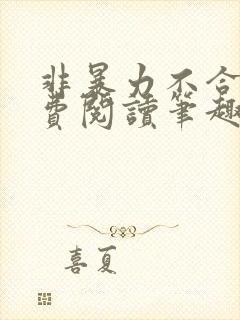 非暴力不合
費閱讀筆趣
喜夏